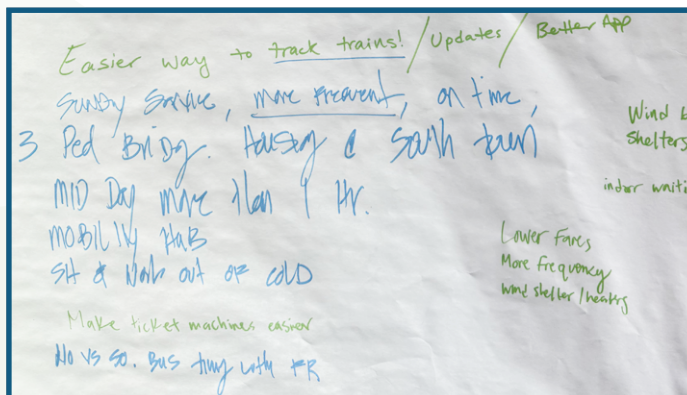 Easier way to track trains! / Updates / Better App
Sunday Service, more frequent, on time,
3 Ped Bridg. Housing @ South
MID Day more than 1 Hr.
MOBILITY HUB
Sit & Work out of COLD
Make ticket machines easier
No vs So. Bus with
Wind
Shelters
indoor
Lower Fares
More frequency
wind shelter/heating